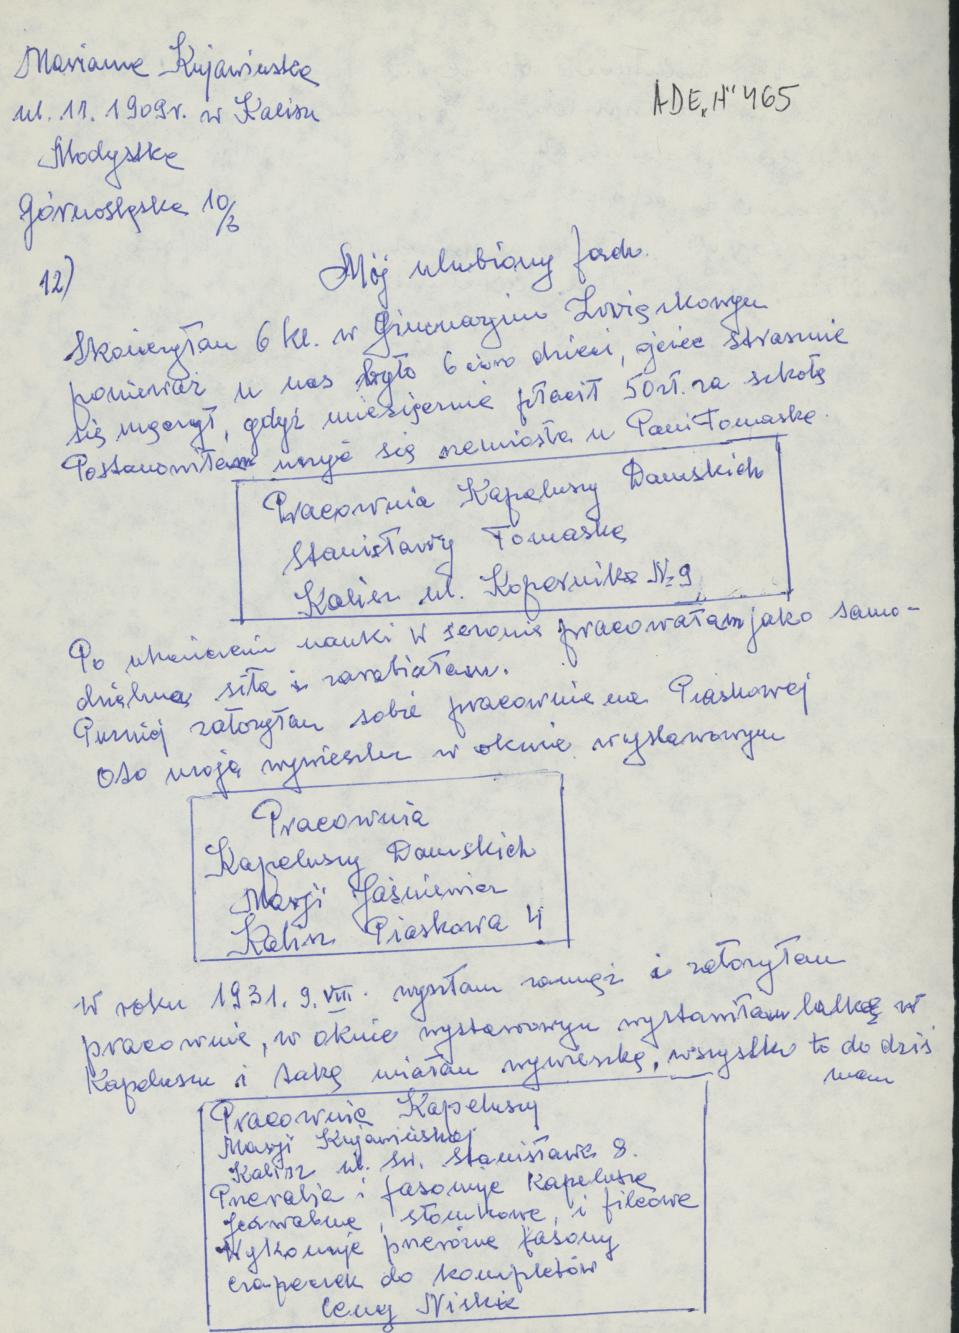 Marianna Kujawińska
ur. 11. 1909r. w Kaliszu
ADE„H" 465
Modystka
Górnośląska 10/3
12) Mój ulubiony fach.
Skończyłam 6 kl. w Gimnazjum Związkowym
ponieważ u nas było 6-cioro dzieci, ojciec strasznie
się męczył, gdyż miesięcznie płacił 50 zł. za szkołę
Postanowiłam uczyć się rzemiosła u Pani Tomaskę.
Pracownia Kapeluszy Damskich
Stanisławy Tomaskę
Kalisz ul. Kopernika № 9
Po ukończeniu nauki w sezonie pracowałam jako samo-
dzielna siła i zarabiałam.
Puzniej założyłam sobie pracownie na Piaskowej
Oto moja wywieszka w oknie wystawowym
Pracownia
Kapeluszy Damskich
Marji Jaśniewicz
Kalisz Piaskowa 4
W roku 1931. 9. VIII. wyszłam zamąż i założyłam
pracownie, w oknie wystawowym wystawiłam lalkę w
Kapeluszu i taką miałam wywieszkę, wszystko to do dziś
mam
Pracownia Kapeluszy
Marji Kujawińskiej
Kalisz ul. Św. Stanisława 8.
Przerabia i fasonuje Kapelusze
jedwabne, słomkowe, i filcowe
Wykonuje przeróżne fasony
czapeczek do kompletów
Ceny Niskie